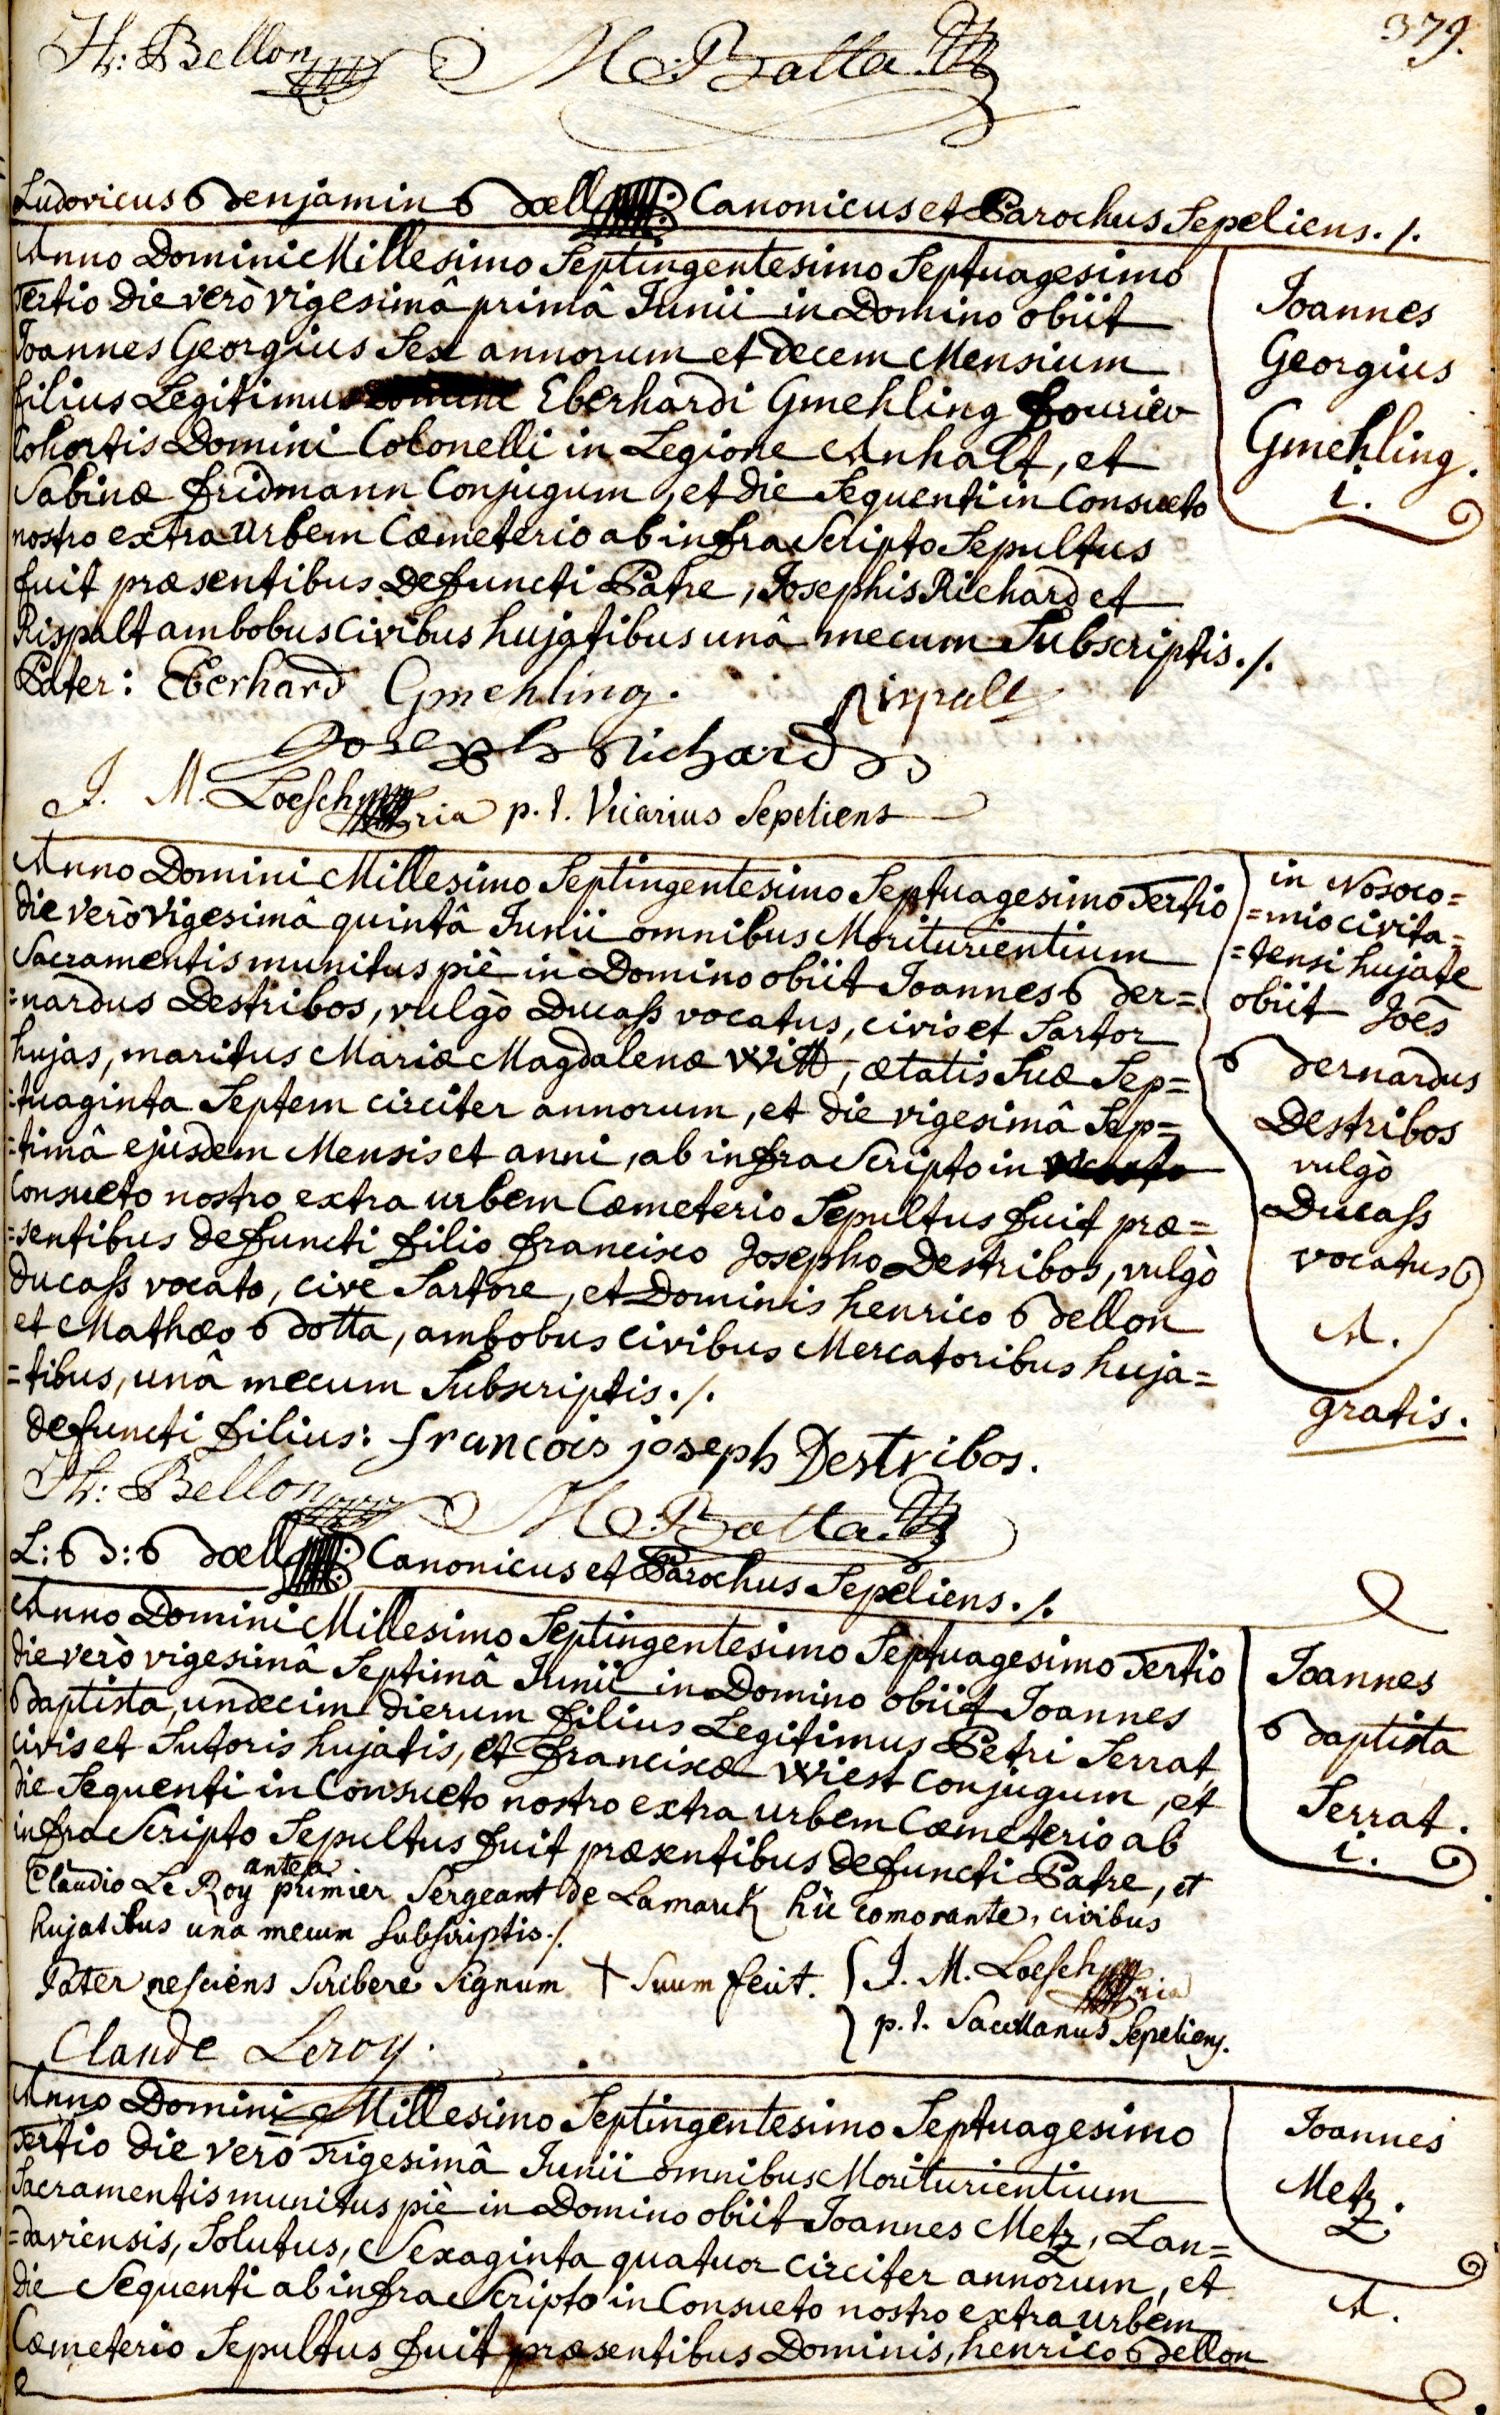 379.
H: Bellon M: Botta
Ludovicus Benjamin Boell Canonicus et Parochus Sepeliens ./.
Anno Domini Millesimo Septingentesimo Septuagesimo
Tertio die verò vigesimâ primâ Junii in Domino obiit
Joannes Georgius Sex annorum et decem Mensium
filius Legitimus Eberhardi Gmehling fourier
Cohortis Domini Colonelli in Legione Anhalt, et
Sabinæ fridmann Conjugum, et die Sequenti in Consueto
nostro extra Urbem Cœmeterio ab infra Scripto Sepultus
fuit præsentibus defuncti Patre, Josephis Richard et
Rispalt ambobus Civibus hujatibus unâ mecum Subscriptis ./.
Joannes
Georgius
Gmehling.
i.
Pater: Eberhard Gmehling. Rispalt
Joseph Richard
J. M. Loesch p. t. Vicarius Sepeliens
Anno Domini Millesimo Septingentesimo Septuagesimo Tertio
die verò vigesimâ quintâ Junii omnibus Moriturientium
Sacramentis munitus piè in Domino obiit Joannes Ber=
=nardus Destribos, vulgò Ducass vocatus, civis et Sartor
hujas, maritus Mariæ Magdalenæ Witt, ætatis Suæ Sep=
=tuaginta Septem circiter annorum, et die vigesimâ Sep=
=timâ ejusdem Mensis et anni, ab infra Scripto in
Consueto nostro extra urbem Cœmeterio Sepultus fuit præ=
=sentibus defuncti filio francisco Josepho Destribos, vulgò
Ducass vocato, cive Sartore, et Dominis henrico Bellon
et Mathæo Botta, ambobus Civibus Mercatoribus huja=
=tibus, unâ mecum Subscriptis ./.
in Nosoco=
=mio civita=
=tensi hujate
obiit Joēs
Bernardus
Destribos
vulgò
Ducass
vocatus
A.
gratis.
defuncti filius: francois joseph Destribos.
H: Bellon M: Botta
L: B: Boell Canonicus et Parochus Sepeliens ./.
Anno Domini Millesimo Septingentesimo Septuagesimo Tertio
die verò vigesimâ Septimâ Junii in Domino obiit Joannes
Baptista, undecim dierum filius Legitimus Petri Serrat,
civis et Sutoris hujatis, et franciscæ Wiest conjugum, et
die Sequenti in Consueto nostro extra urbem Cœmeterio ab
infra Scripto Sepultus fuit præsentibus defuncti Patre, et
Claudio Le Roy antea primier Sergeant de Lamarck hic comorante, civibus
hujatibus una mecum subscriptis ./.
Joannes
Baptista
Serrat.
i.
Pater nesciens Scribere Signum + Suum fecit. J. M. Loesch
p. t. Sacellanus Sepeliens.
Claude Leroy.
Anno Domini Millesimo Septingentesimo Septuagesimo
Tertio die verò Trigesimâ Junii omnibus Moriturientium
Sacramentis munitus piè in Domino obiit Joannes Metz, Lan=
=daviensis, Solutus, Sexaginta quatuor circiter annorum, et
die Sequenti ab infra Scripto in Consueto nostro extra urbem
Cœmeterio Sepultus fuit præsentibus Dominis, henrico Bellon
Joannes
Metz.
A.